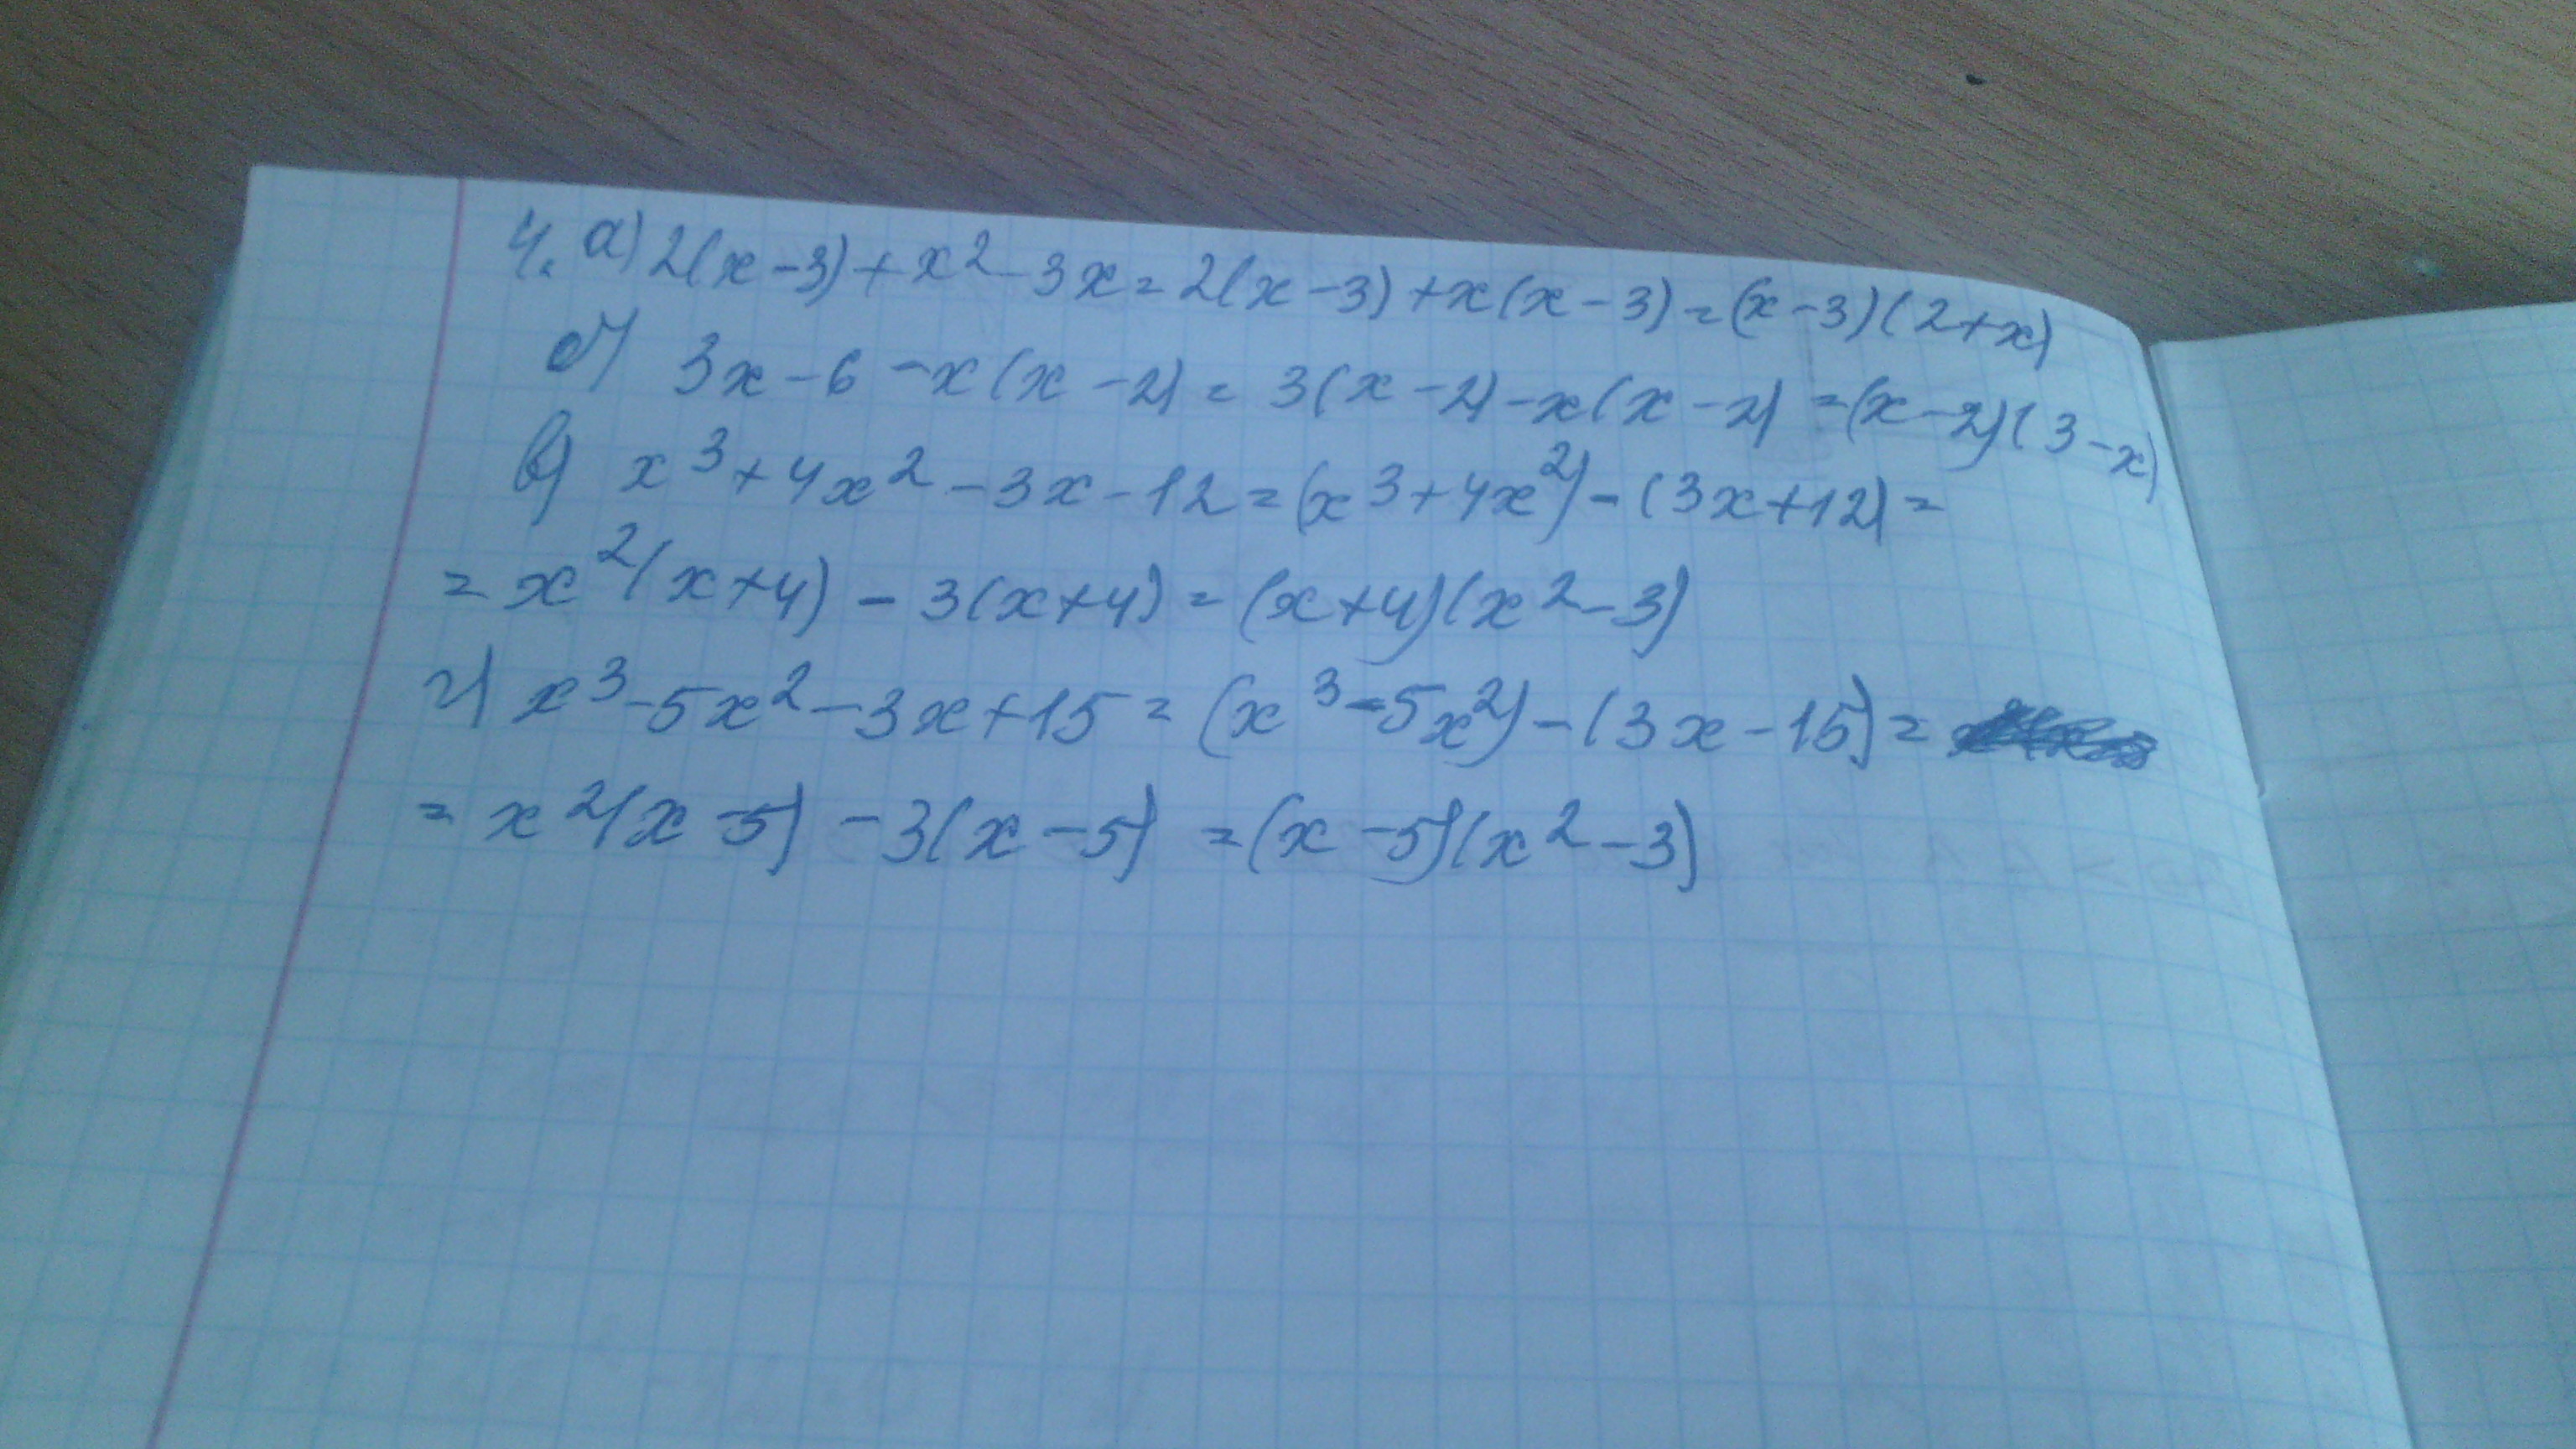 4. а) 2(x-3)+x²-3x=2(x-3)+x(x-3)=(x-3)(2+x)
б) 3x-6-x(x-2)=3(x-2)-x(x-2)=(x-2)(3-x)
в) x³+4x²-3x-12=(x³+4x²)-(3x+12)=
=x²(x+4)-3(x+4)=(x+4)(x²-3)
г) x³-5x²-3x+15=(x³-5x²)-(3x-15)=
=x²(x-5)-3(x-5)=(x-5)(x²-3)